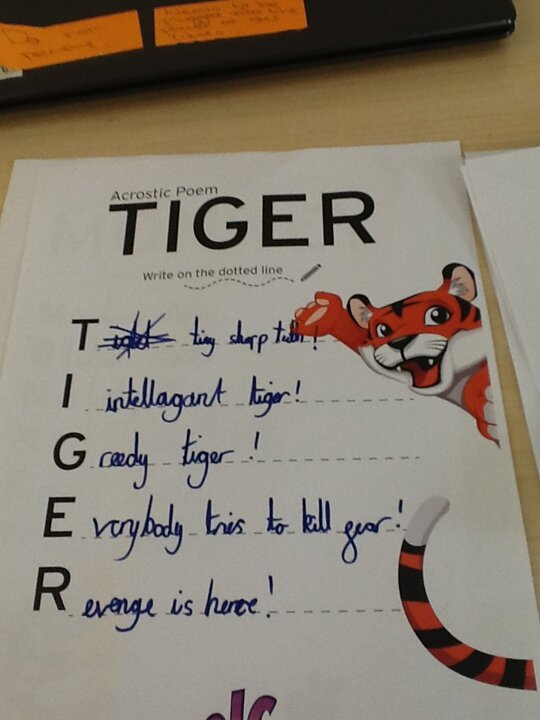 Do non
remove
Acrostic Poem
TIGER
Write on the dotted line
T tiny sharp teeth!
I intellagant tiger!
G reedy tiger!
E verybody tries to kill
R evenge is here!